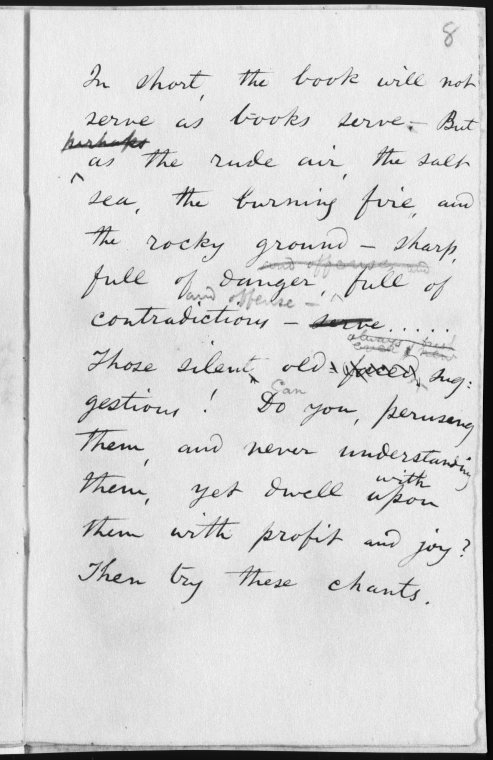 8
In short, the book will not
serve as books serve. – But
perhaps
as the rude air, the salt
sea, the burning fire, and
the rocky ground – sharp,
and offense, and
full of danger, full of
and offense –
contradictions – serve . . . . .
always, just
Those silent, old faced sug:
Can
gestions! Do you, perusing
them, and never understanding
with
them, yet dwell upon
them with profit and joy?
Then try these chants.